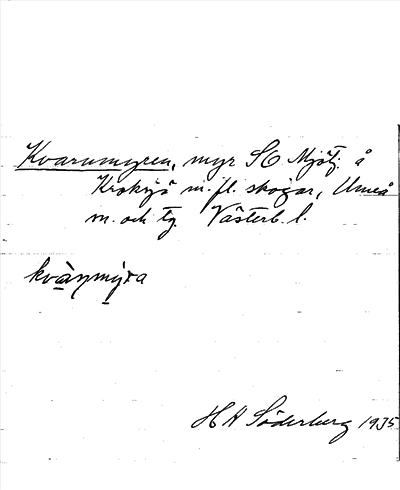 Kvarnmyren, myr SO Mjötj. å
Kroksjö m. fl. skogar, Umeå
m. och tg. Västerb. l.
kvànmýra
H A Söderberg 1935